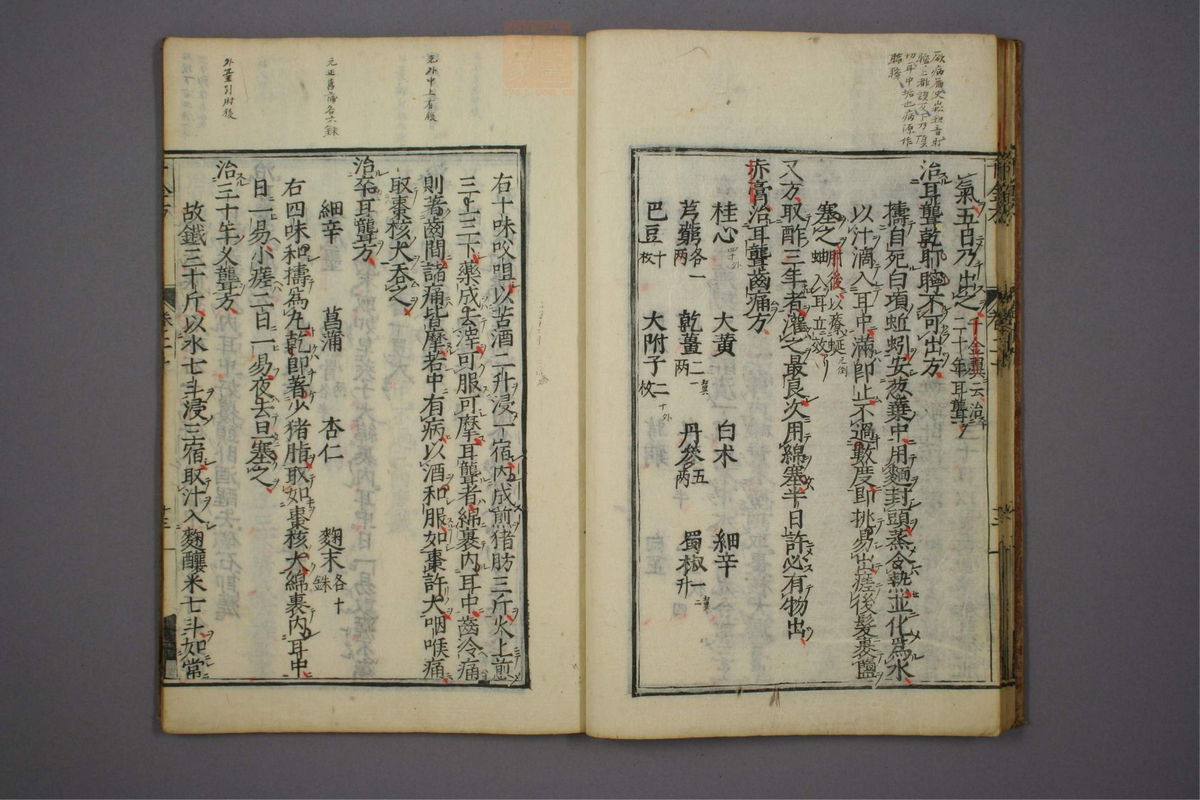 氣五日乃出之千金翼云治二十年耳聾
治耳聾乾耵聹不可出方
擣自死白項蚯蚓安葱葉中用麵封頭蒸令熟並化爲水
以汁滴入耳中滿即止不過數度即挑易出瘥後髮裹鹽
塞之肘後以療蚰蜒入耳立效
又方取酢三年者灌之最良次用綿塞半日許必有物出
赤膏治耳聾齒痛方
桂心 大黄 白术 細辛
芎藭各一兩 乾薑二兩 丹參五兩 蜀椒一升
巴豆十枚 大附子二枚
右十味㕮咀以苦酒二升浸一宿内成煎猪肪三斤火上煎
三上三下藥成去滓可服可摩耳聾者綿裹内耳中齒冷痛
則著齒間諸痛皆摩若中有病以酒和服如棗許大咽喉痛
取棗核大吞之
治卒耳聾方
細辛 菖蒲 杏仁 麴末各十銖
右四味和擣爲丸乾即著少猪脂取如棗核大綿裹内耳中
日一易小瘥二日一易夜去旦塞之
治三十年久聾方
故鐵三十斤以水七斗浸三宿取汁入麴釀米七斗如常